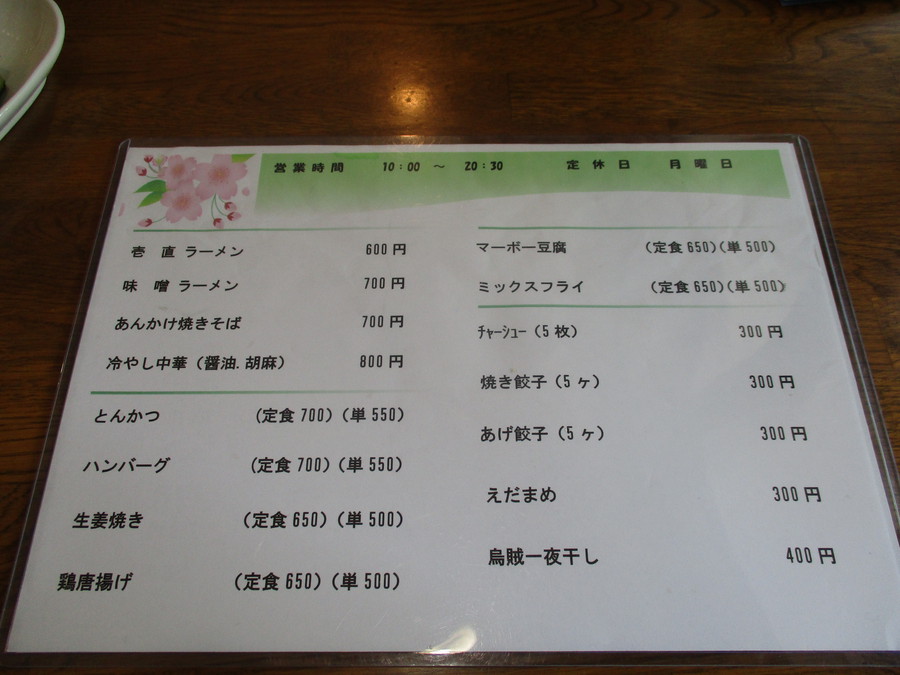 営業時間 10:00 ～ 20:30 定休日 月曜日
壱 直 ラーメン 600円
味 噌 ラーメン 700円
あんかけ焼きそば 700円
冷やし中華（醤油.胡麻） 800円
とんかつ （定食700）（単550）
ハンバーグ （定食700）（単550）
生姜焼き （定食650）（単500）
鶏唐揚げ （定食650）（単500）
マーボー豆腐 （定食650）（単500）
ミックスフライ （定食650）（単500）
ﾁｬｰｼｭｰ（5枚） 300円
焼き餃子（5ヶ） 300円
あげ餃子（5ヶ） 300円
えだまめ 300円
烏賊一夜干し 400円